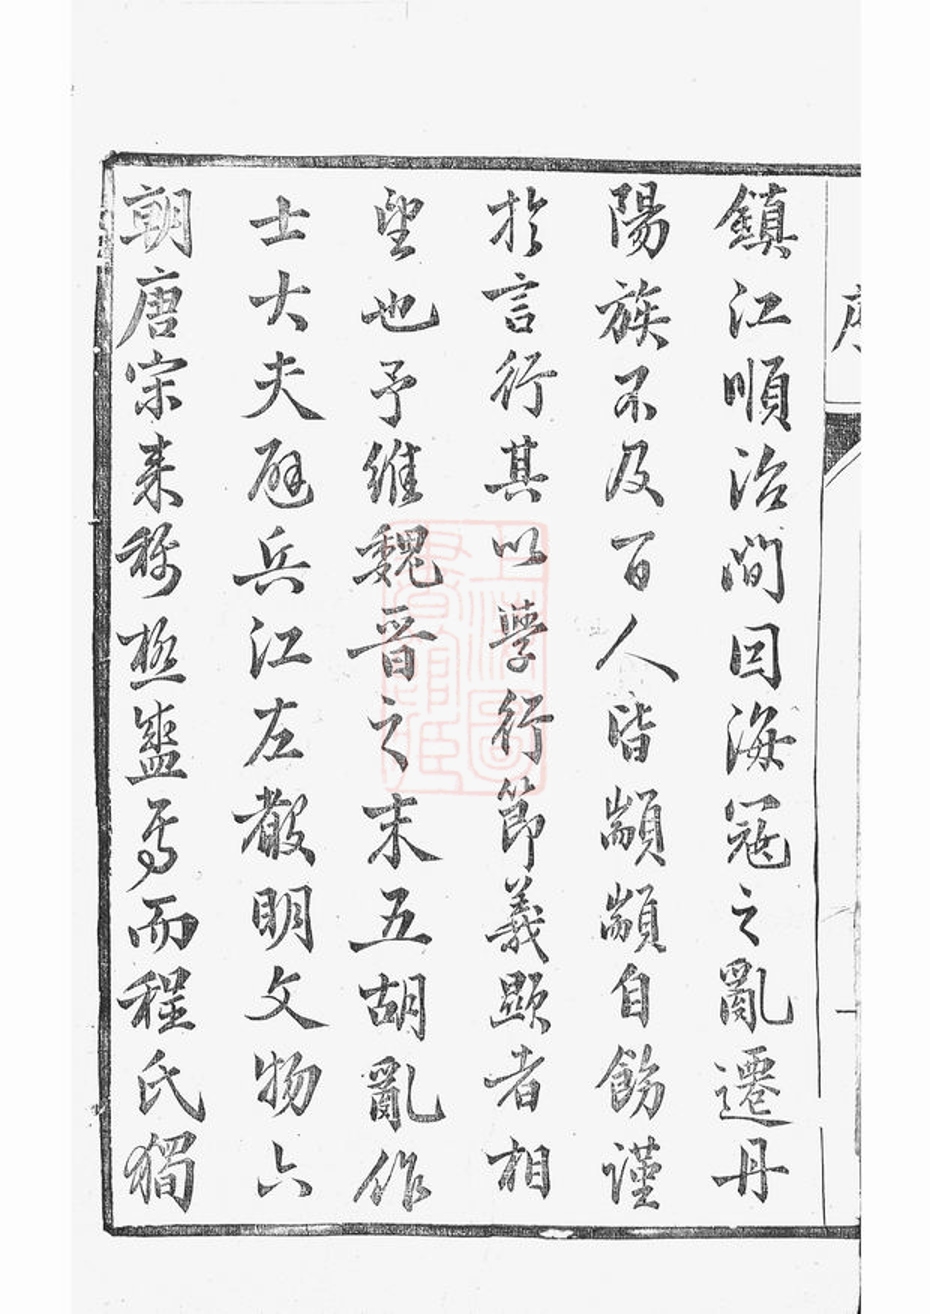 序
鎮江順治間因海冦之亂遷丹
陽族不及百人皆顓顓自飭謹
於言行其以學行節義顯者相
望也予維魏晋之末五胡亂作
士大夫避兵江左聲明文物六
朝唐宋来稱極盛焉而程氏獨
上海圖書館藏